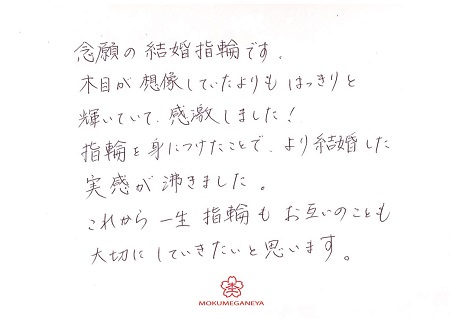 念願の結婚指輪です。
木目が想像していたよりもはっきりと
輝いていて、感激しました！
指輪を身につけたことで、より結婚した
実感が沸きました。
これから一生指輪もお互いのことも
大切にしていきたいと思います。
MOKUMEGANEYA